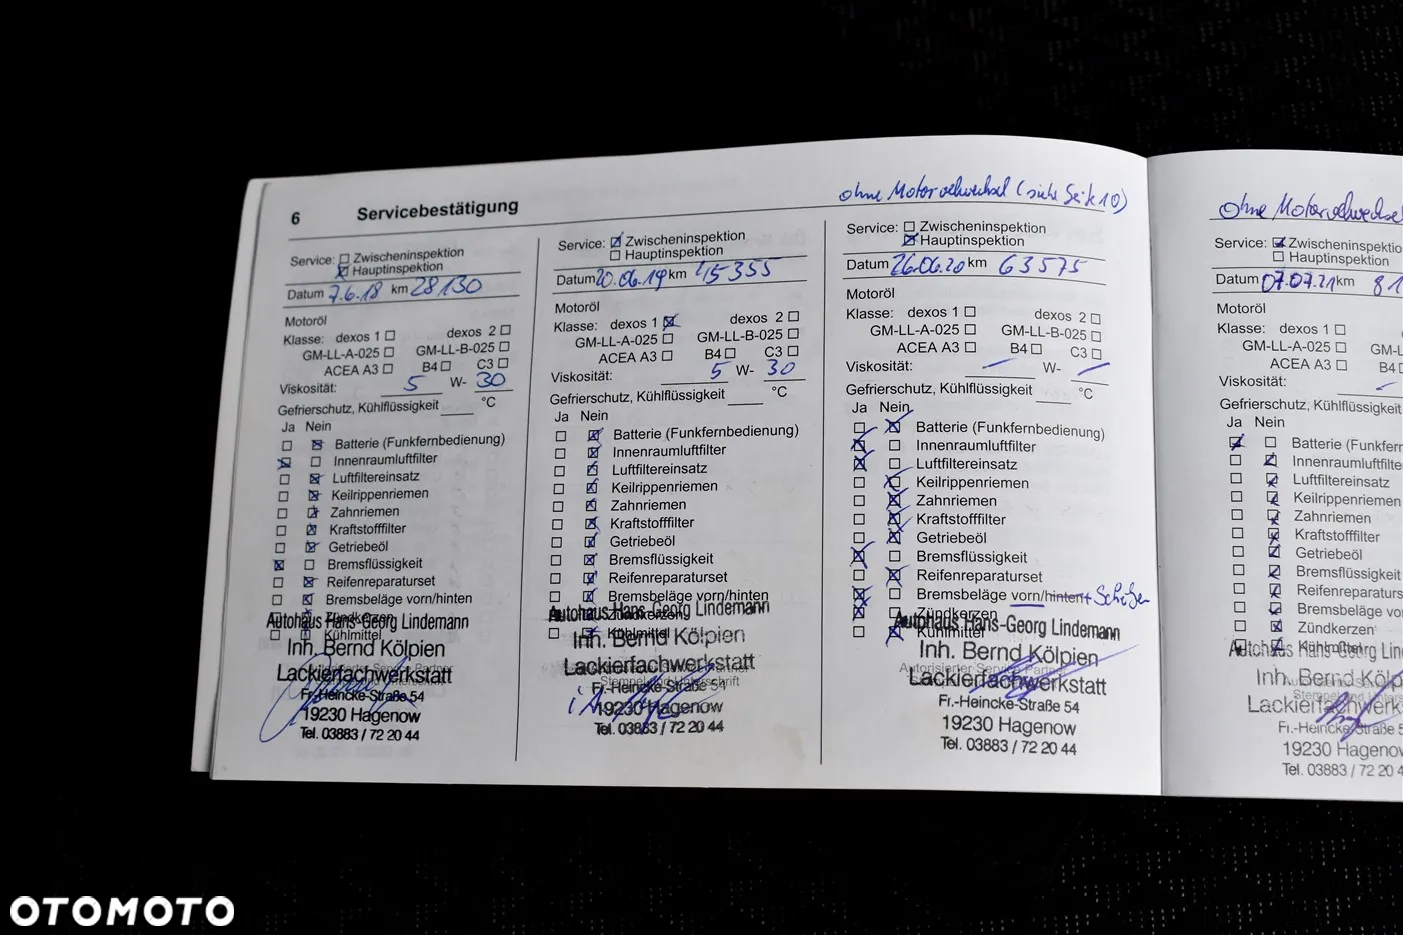 6 Servicebestätigung
ohne Motorölwechsel (siehe Seite 10)
Service: Zwischeninspektion
Hauptinspektion
Datum 7.6.18 km 28130
Motoröl
Klasse: dexos 1 dexos 2
GM-LL-A-025 GM-LL-B-025
ACEA A3 B4 C3
Viskosität: 5 W- 30
Gefrierschutz, Kühlflüssigkeit °C
Ja Nein
Batterie (Funkfernbedienung)
Innenraumluftfilter
Luftfiltereinsatz
Keilrippenriemen
Zahnriemen
Kraftstofffilter
Getriebeöl
Bremsflüssigkeit
Reifenreparaturset
Bremsbeläge vorn/hinten
Zündkerzen
Autohaus Hans-Georg Lindemann
Kühlmittel
Inh. Bernd Kölpien
Lackierfachwerkstatt
Fr.-Heincke-Straße 54
19230 Hagenow
Tel. 03883 / 72 20 44
Service: Zwischeninspektion
Hauptinspektion
Datum 20.06.19 km 45355
Motoröl
Klasse: dexos 1 dexos 2
GM-LL-A-025 GM-LL-B-025
ACEA A3 B4 C3
Viskosität: 5 W- 30
Gefrierschutz, Kühlflüssigkeit °C
Ja Nein
Batterie (Funkfernbedienung)
Innenraumluftfilter
Luftfiltereinsatz
Keilrippenriemen
Zahnriemen
Kraftstofffilter
Getriebeöl
Bremsflüssigkeit
Reifenreparaturset
Bremsbeläge vorn/hinten
Autohaus Hans-Georg Lindemann
Zündkerzen
Kühlmittel
Inh. Bernd Kölpien
Lackierfachwerkstatt
Stempel und Unterschrift
Fr.-Heincke-Straße 54
19230 Hagenow
Tel. 03883 / 72 20 44
Service: Zwischeninspektion
Hauptinspektion
Datum 26.06.20 km 63575
Motoröl
Klasse: dexos 1 dexos 2
GM-LL-A-025 GM-LL-B-025
ACEA A3 B4 C3
Viskosität: – W- –
Gefrierschutz, Kühlflüssigkeit °C
Ja Nein
Batterie (Funkfernbedienung)
Innenraumluftfilter
Luftfiltereinsatz
Keilrippenriemen
Zahnriemen
Kraftstofffilter
Getriebeöl
Bremsflüssigkeit
Reifenreparaturset
Bremsbeläge vorn/hinten + Scheiben
Zündkerzen
Autohaus Hans-Georg Lindemann
Kühlmittel
Inh. Bernd Kölpien
Autorisierter Service Partner
Lackierfachwerkstatt
Fr.-Heincke-Straße 54
19230 Hagenow
Tel. 03883 / 72 20 44
ohne Motorölwechsel
Service: Zwischeninspektio
Hauptinspektio
Datum 07.07.21 km 81
Motoröl
Klasse: dexos 1
GM-LL-A-025 GM-L
ACEA A3 B4
Viskosität: –
Gefrierschutz, Kühlflüssigkeit
Ja Nein
Batterie (Funkfern
Innenraumluftfilte
Luftfiltereinsatz
Keilrippenriemen
Zahnriemen
Kraftstofffilter
Getriebeöl
Bremsflüssigkeit
Reifenreparaturs
Bremsbeläge vo
Zündkerzen
Kühlmittel
Autohaus Hans-Georg Lind
Inh. Bernd Kölp
Lackierfachwerks
Fr.-Heincke-Straße 5
19230 Hagenow
Tel. 03883 / 72 20 4
OTOMOTO